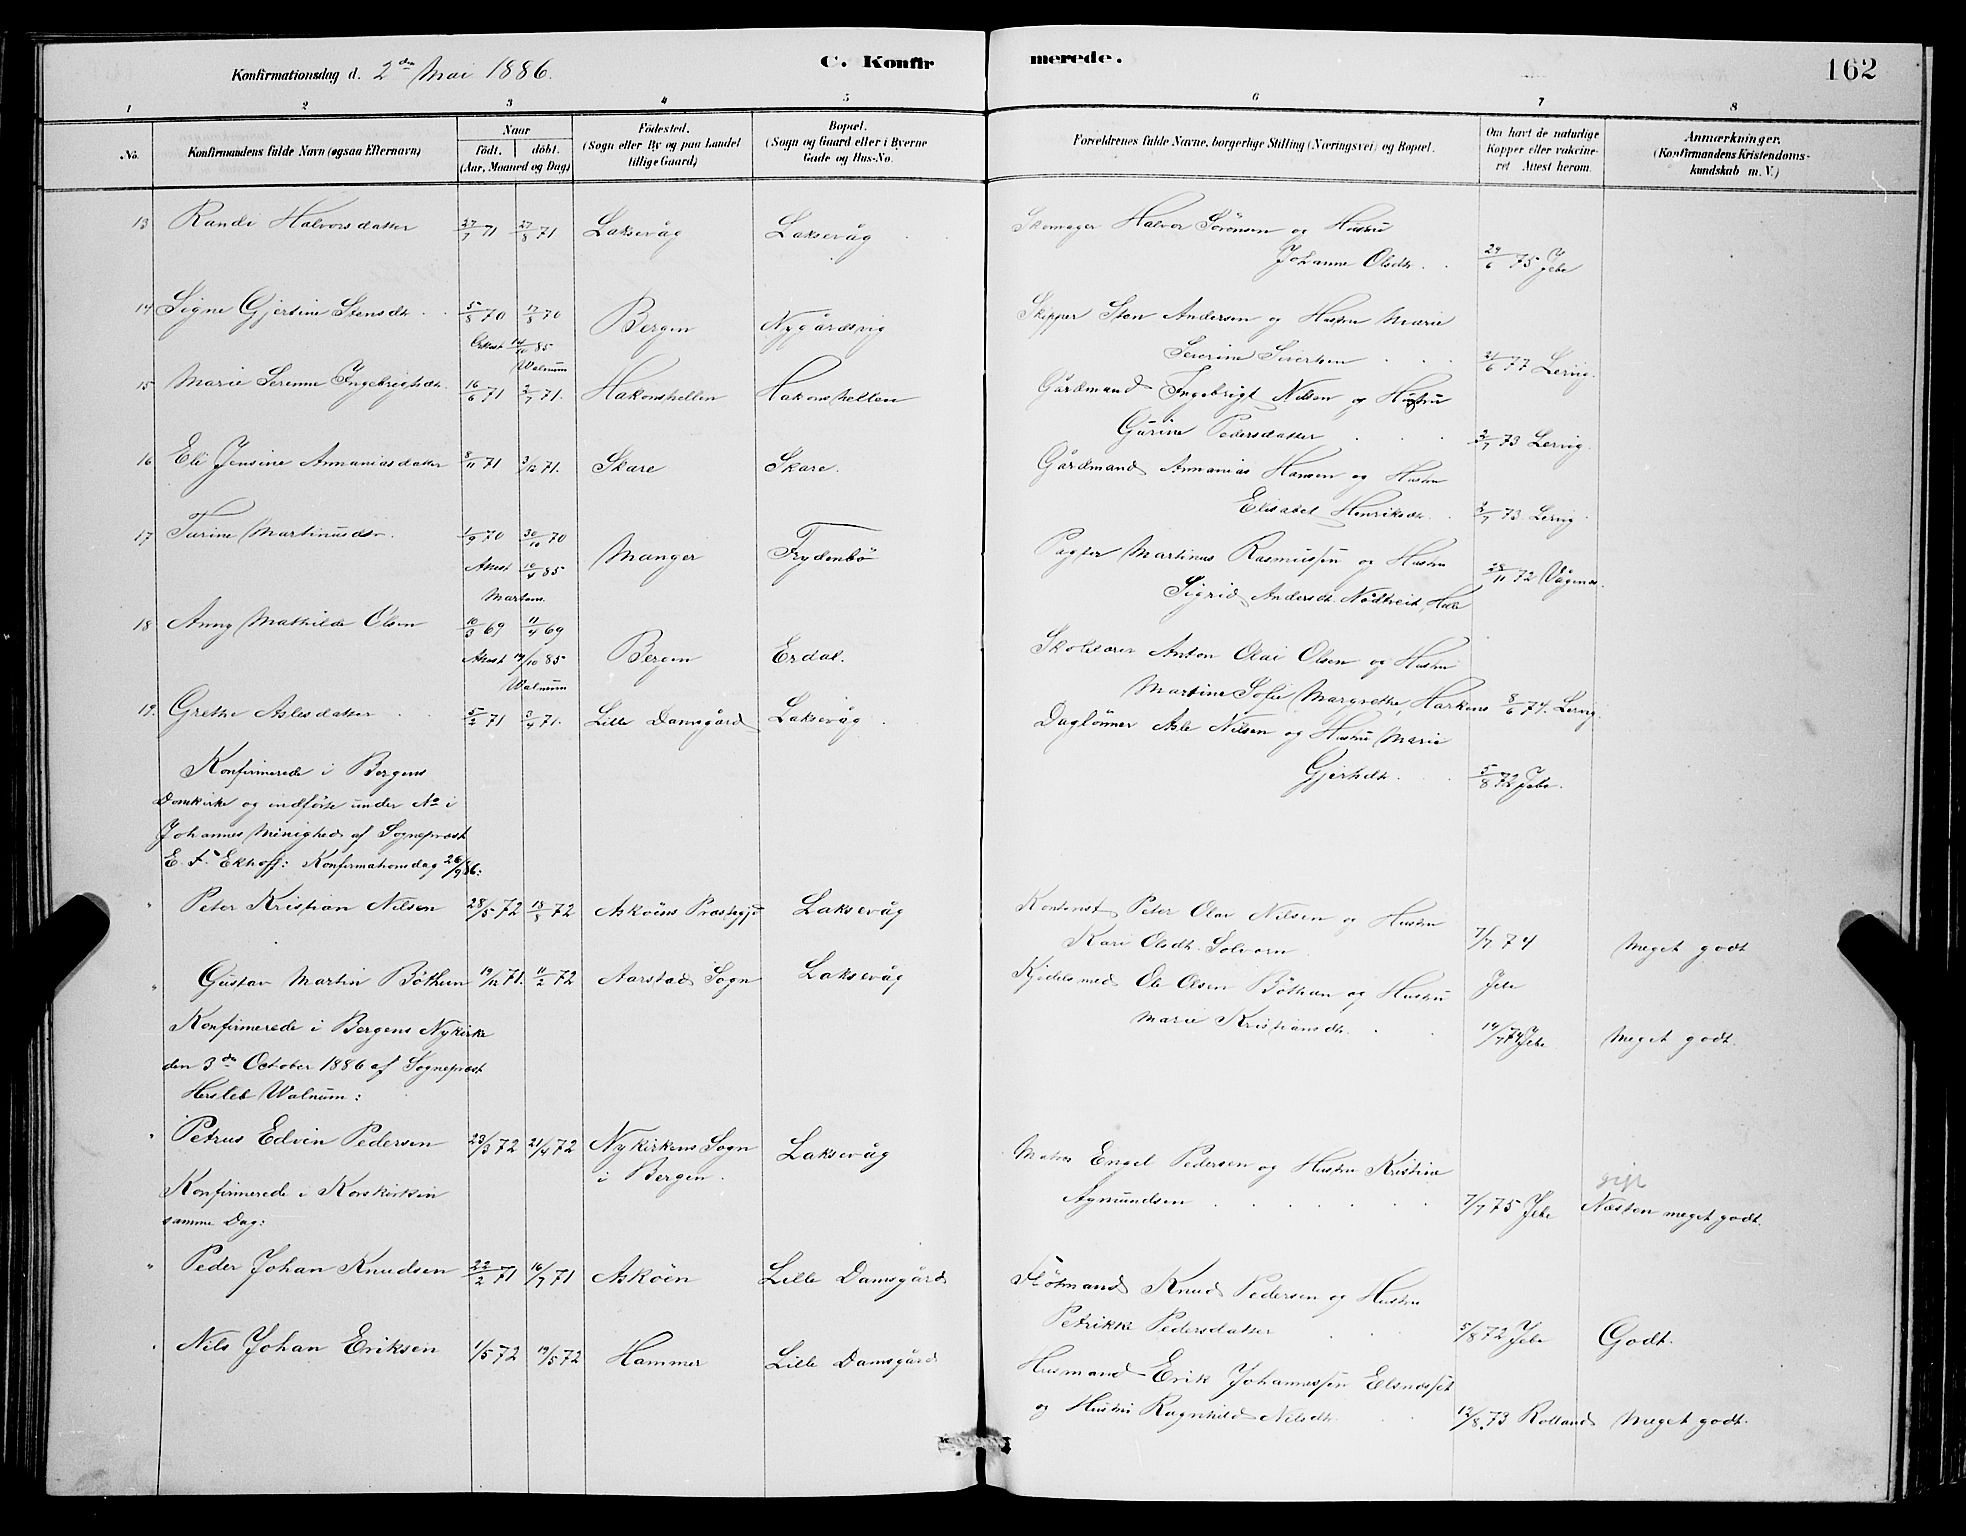 Konfirmationsdag d. 2den Mai 1886.
C. Konfirmerede.
162
1 2 3 4 5 6 7 8
No. Konfirmandens fulde Navn (ogsaa Efternavn) Naar födt. döbt. (Aar, Maaned og Dag) Födested. (Sogn eller By og paa Landet tillige Gaard) Bopæl. (Sogn og Gaard eller i Byerne Gade og Hus-No. Forældrenes fulde Navne, borgerlige Stilling (Næringsvei) og Bopæl. Om havt de naturlige Kopper eller vakcineret Attest herom. Anmærkninger. (Konfirmandens Kristendomskundskab m. V.)
13 Randi Halvorsdatter 27/7 71 27/8 71 Laksevåg Laksevåg Skomager Halvor Sörensen og Hustru
Johanne Olsdtr. 29/6 75 Jebe
14 Signe Gjertine Stensdtr. 5/8 70 17/8 70 Bergen Nygårdsvig Skipper Sten Andersen og Hustru Marie
Attest 14/10 85 Walnum
Severine Sivertsen 21/6 77 Lervig.
15 Marie Serenne Ingebrigtsdtr. 16/6 71 2/7 71. Hakonshellen Hakonshellen Gårdmand Ingebrigt Nilsen og Hustru
Gurine Pedersdatter 3/7 73 Lervig.
16 Eli Jensine Annaniasdatter 8/11 71 3/12 71. Skare Skare. Gårdmand Annanias Hansen og Hustru
Elisabet Henriksdtr. 3/7 73 Lervig
17 Turine Martinusdtr. 1/9 70 30/10 70 Manger Frydenbö Pagter Martinus Rasmussen og Hustru
Attest 10/4 85 Martens.
Sigrid Andersdt. Nödtveit, 28/11 72 Vågenes.
18 Anny Mathilde Olsen 10/3 69 11/4 69 Bergen Erdal. Skolelærer Anton Olai Olsen og Hustru
Attest 14/10 85 Walnum
Martine Sofie Margrethe, Harkens 8/6 74. Lervig.
19. Grethe Aslesdatter 5/2 71 3/4 71. Lille Damsgård Laksevåg Daglönner Asle Nilsen og Hustru Marie
Gjertsdtr. 5/8 72 Jebe.
Konfirmerede i Bergens
Domkirke og indförte under No i
Johannes Menighed af Sognepræst
E. F. Ekhoff: Konfirmationsdag 26/9 86:
" Peter Kristian Nilsen 28/5 72 18/8 72 Asköens Præstegjd Laksevåg Kontorist Peter Olai Nilsen og Hustru
Kari Olsdtr. Solvorn 7/7 74 Jebe Meget godt
" Gustav Martin Böthun 19/12 71. 11/2 72 Aarstad Sogn Laksevåg Kjedelsmed Ole Olsen Böthun og Hustru
Marie Kristiansdtr. 14/7 74 Jebe Meget godt.
Konfirmerede i Bergens Nykirke
den 3die October 1886 af Sognepræst
Hersleb Walnum:
" Petrus Edvin Pedersen 23/3 72 21/4 72 Nykirkens Sogn i Bergen. Laksevåg Matros Engel Pedersen og Hustru Kristine
Agmundsen 7/7 75 Jebe Næsten meget godt.
Konfirmerede i Korskirken
samme Dag:
" Peder Johan Knudsen 22/2 71 16/7 71 Asköen Lille Damsgård Flötmand Knud Pedersen og Hustru
Petrikke Pedersdatter 5/8 72 Jebe Godt.
" Nils Johan Eriksen 1/5 72 19/5 72 Hammer Lille Damsgård Husmand Erik Johannessen
og Hustru Ragnhild Nilsdtr. 12/8 73 Rolland Meget godt.